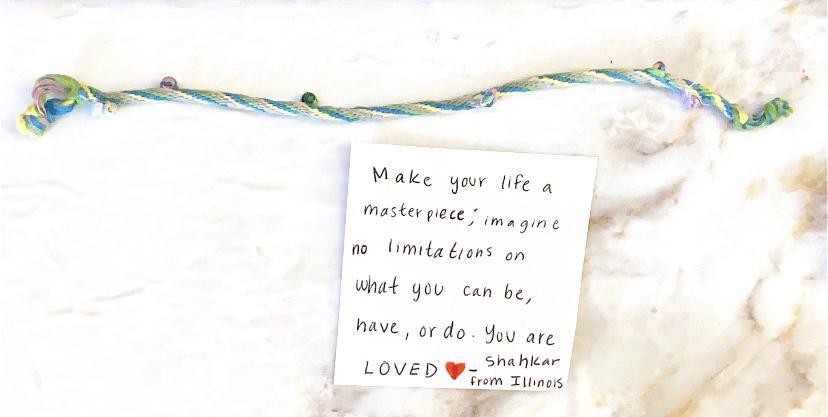 Make your life a
masterpiece; imagine
no limitations on
what you can be,
have, or do. You are
LOVED ❤ - Shahkar
from Illinois